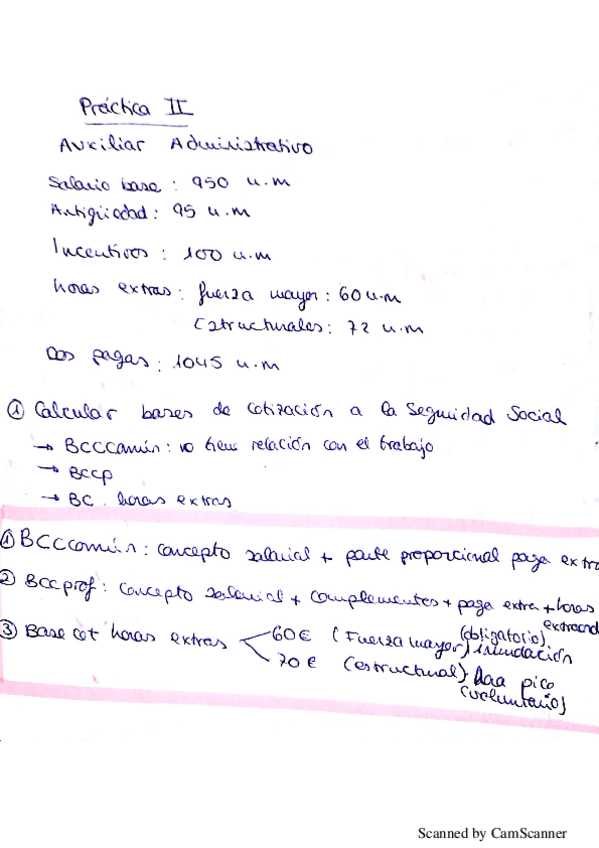 Práctica II
Auxiliar Administrativo
Salario base : 950 u.m
Antigüedad : 95 u.m
Incentivos : 100 u.m
horas extras : fuerza mayor : 60 u.m
Estructurales : 72 u.m
Dos pagas : 1045 u.m
① Calcular bases de cotización a la Seguridad Social
→ BCCComún : no tiene relación con el trabajo
→ BCCP
→ BC. horas extras
① BCCcomún : concepto salarial + parte proporcional paga extra
② BCCprof : concepto salarial + complementos + paga extra + horas
③ Base cot horas extras 60€ (Fuerza mayor) (obligatorio) inundación
70€ (estructural) pico (voluntario)
Scanned by CamScanner